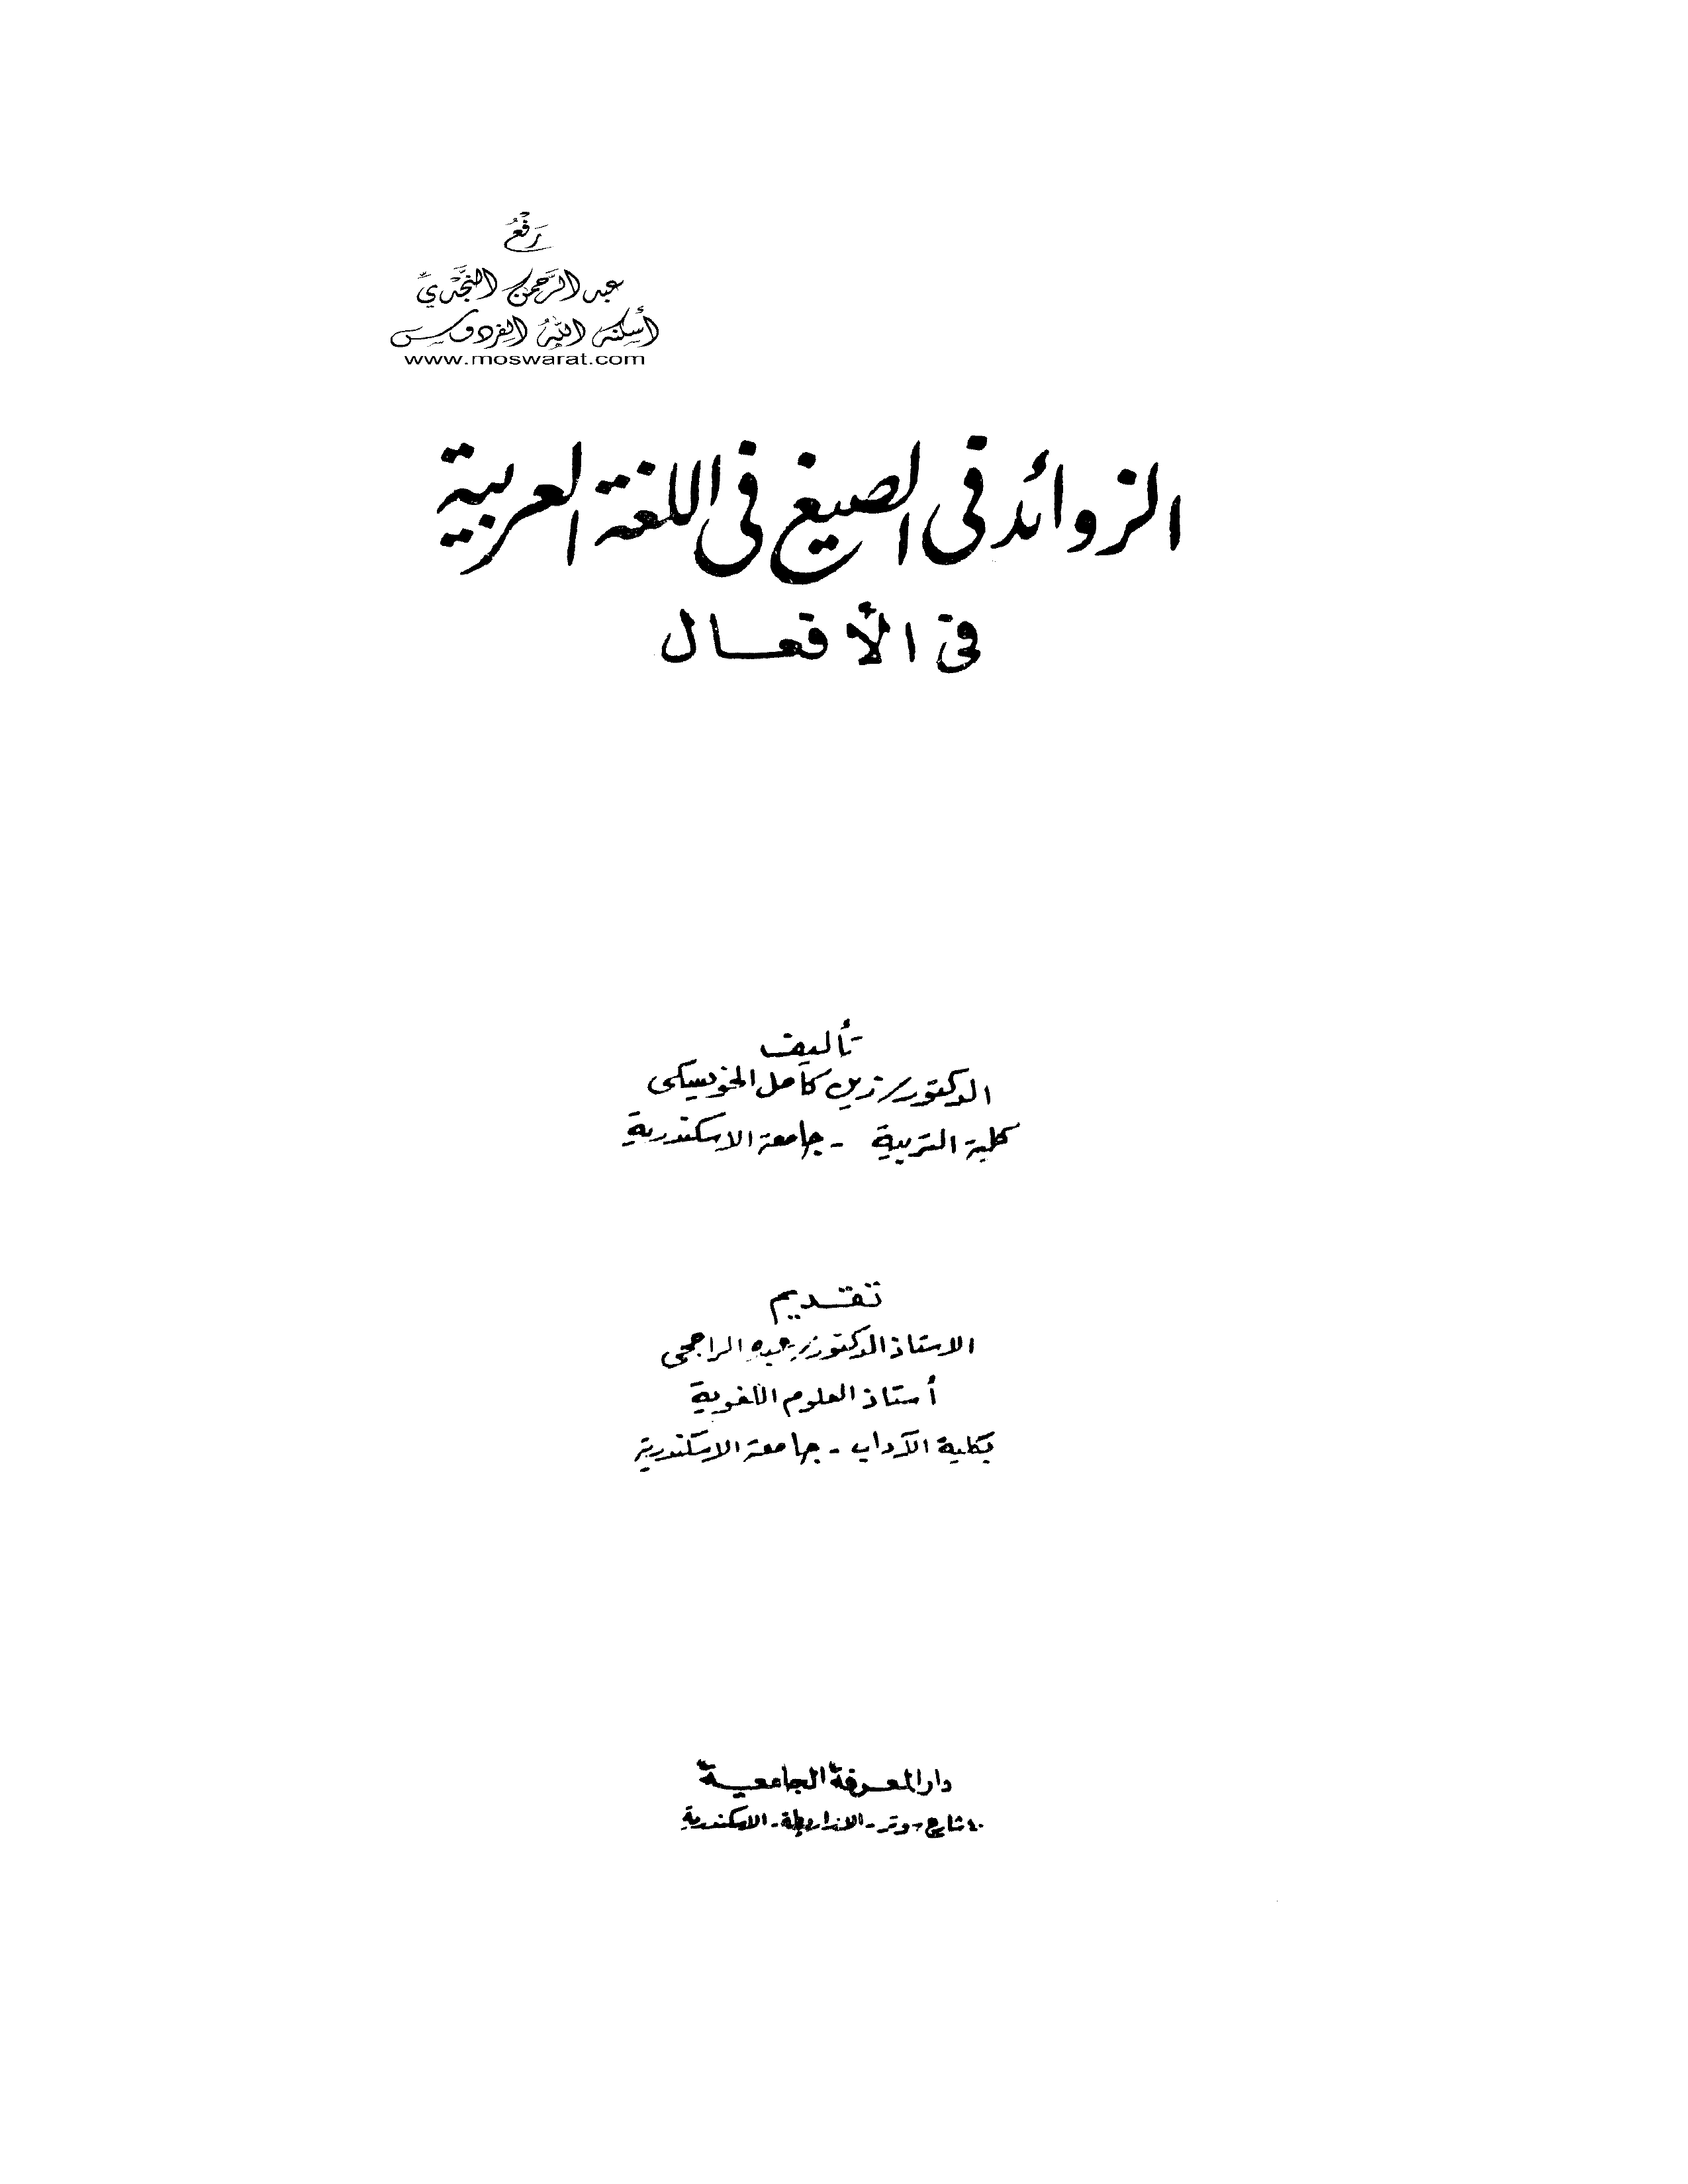 رَفْعُ
عبد الرَّحمن النَّجْديّ
أسكنه اللهُ الفردوس
www.moswarat.com
الزوائد فى الصيغ فى اللغة العربية
فى الأفعال
تأليف
الدكتور/ زين كامل الخويسكى
كلية التربية - جامعة الاسكندرية
تقديم
الاستاذ الدكتور/ عبده الراجحى
أستاذ العلوم اللغوية
بكلية الآداب - جامعة الاسكندرية
دار المعرفة الجامعية
٤٠ ش سوتر - الازاريطة - الاسكندرية